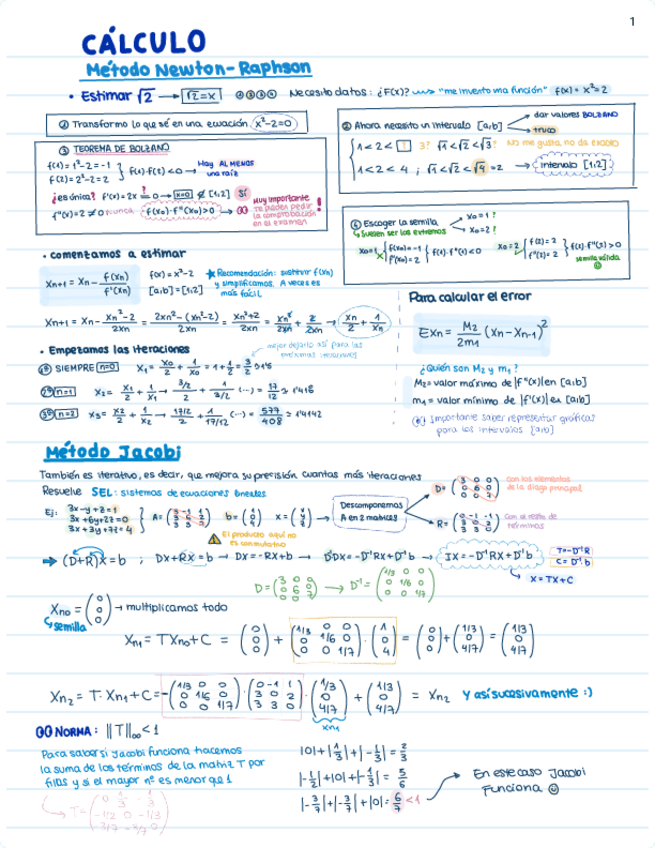 1
CÁLCULO
Método Newton-Raphson
• Estimar √2 → √2 = x ①②③④ Necesito datos: ¿F(x)? "me invento una función" f(x) = x²-2
① Transformo lo que sé en una ecuación x²-2=0
② Ahora necesito un intervalo [a,b] → dar valores BOLZANO
→ truco
1 < 2 < □ 3? √1 < √2 < √3? No me gusta, no da exacto
1 < 2 < 4 ; √1 < √2 < √4 = 2 → intervalo [1,2]
③ TEOREMA DE BOLZANO
f(1) = 1²-2 = -1
f(2) = 2²-2 = 2
} f(1)·f(2) < 0 → Hay AL MENOS una raíz
¿es única? f'(x) = 2x = 0 → x=0 ∉ [1,2] Sí
f''(x) = 2 ≠ 0 nunca f(x₀)·f''(x₀) > 0 →
Muy importante
Te pueden pedir
la comprobación
en el examen
!
④ Escoger la semilla x₀ = 1?
↳ Suelen ser los extremos x₀ = 2?
x₀=1 { f(x₀) = -1
f''(x₀) = 2 } f(1)·f''(1) < 0
x₀ = 2 { f(2) = 2
f''(2) = 2 } f(2)·f''(2) > 0
semilla válida
• comenzamos a estimar
Xn+1 = Xn - f(xn)/f'(xn)
f(x) = x²-2
[a,b] = [1,2]
★ Recomendación: sustituir f(xn)
y simplificamos. A veces es
más fácil
Xn+1 = Xn - (xn²-2)/2xn = (2xn² - (xn²-2))/2xn = (xn²+2)/2xn = xn²/2xn + 2/2xn → xn/2 + 1/xn
mejor dejarlo así para las
próximas iteraciones
• Empezamos las iteraciones
1ª SIEMPRE n=0 X₁ = x₀/2 + 1/x₀ = 1 + 1/2 = 3/2 ≈ 1'5
2ª n=1 X₂ = x₁/2 + 1/x₁ → (3/2)/2 + 1/(3/2) (...) = 17/12 ≈ 1'416
3ª n=2 X₃ = x₂/2 + 1/x₂ → (17/12)/2 + 1/(17/12) (...) = 577/408 ≈ 1'4142
Para calcular el error
EXn = M₂/2m₁ (Xn - Xn-1)²
¿Quién son M₂ y m₁?
M₂ = valor máximo de |f''(x)| en [a,b]
m₁ = valor mínimo de |f'(x)| en [a,b]
Importante saber representar gráficas
para los intervalos [a,b]
Método Jacobi
También es iterativo, es decir, que mejora su precisión cuantas más iteraciones
Resuelve SEL: sistemas de ecuaciones lineales
Ej:
3x - y + z = 1
3x + 6y + 2z = 0
3x + 3y + 7z = 4
Descomponemos
A en 2 matrices
con los elementos
de la diago principal
Con el resto de
términos
El producto aquí no
es conmutativo
→ (D+R)X = b ; DX + RX = b → DX = -RX + b → D⁻¹DX = -D⁻¹RX + D⁻¹b → IX = -D⁻¹RX + D⁻¹b
T = -D⁻¹R
C = D⁻¹·b
X = TX + C
Xn₀ = (0 0 0) → multiplicamos todo
semilla
Xn₁ = TXn₀ + C = (0 0 0) + (1/3 0 0 / 0 1/6 0 / 0 0 1/7) · (1 0 4) = (0 0 0) + (1/3 0 4/7) = (1/3 0 4/7)
Xn₂ = T·Xn₁ + C = -(1/3 0 0 / 0 1/6 0 / 0 0 1/7) (0 -1 1 / 3 0 2 / 3 3 0) (1/3 0 4/7) + (1/3 0 4/7) = Xn₂ Y así sucesivamente :)
xn₁
NORMA: ||T||∞ < 1
Para saber si Jacobi funciona hacemos
la suma de los términos de la matriz T por
filas y si el mayor nº es menor que 1
|0| + |1/3| + |-1/3| = 2/3
|-1/2| + |0| + |-1/3| = 5/6
|-3/7| + |-3/7| + |0| = 6/7 < 1
En este caso Jacobi
Funciona